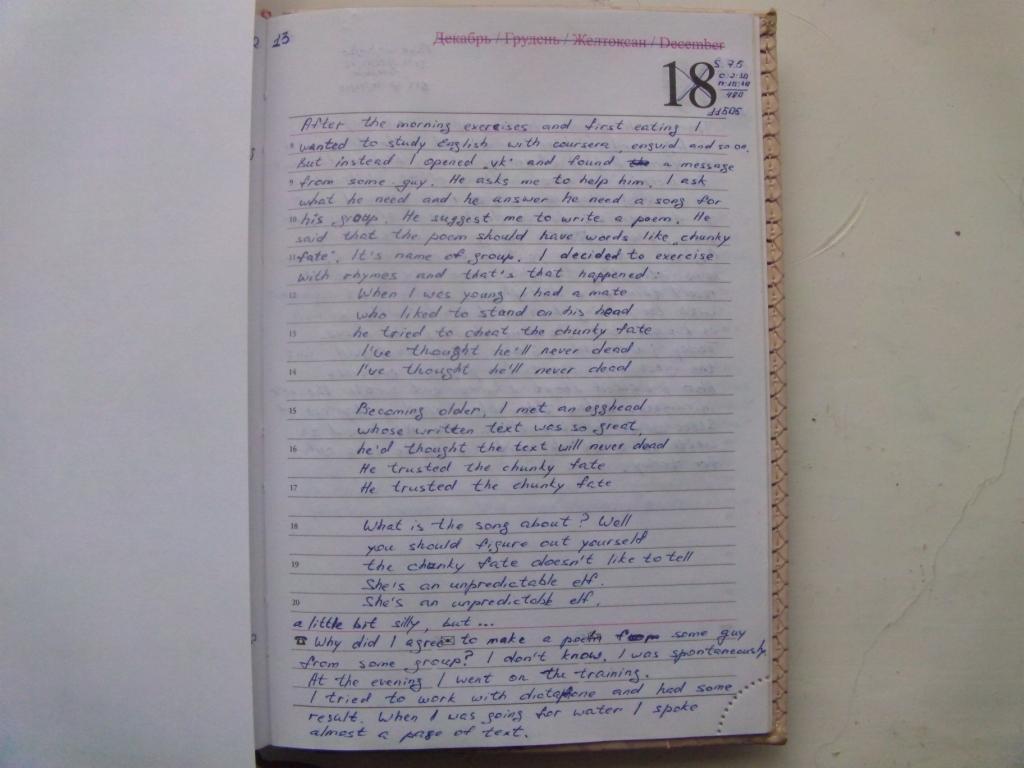 13
Декабрь / Грудень / Желтоксан / December
18
11505
After the morning exercises and first eating I
8 wanted to study English with coursera, engvid and so on.
But instead I opened „vk" and found a message
9 from some guy. He asks me to help him. I ask
what he need and he answer he need a song for
10 his group. He suggest me to write a poem. He
said that the poem should have words like „chunky
11 fate". It's name of group. I decided to exercise
with rhymes and that's that happened:
12 When I was young I had a mate
who liked to stand on his head
13 he tried to cheat the chunky fate
I've thought he'll never dead
14 I've thought he'll never dead
15 Becoming older, I met an egghead
whose written text was so great,
16 he'd thought the text will never dead
He trusted the chunky fate
17 He trusted the chunky fate
18 What is the song about? Well
you should figure out yourself
19 the chunky fate doesn't like to tell
She's an unpredictable elf.
20 She's an unpredictable elf.
a little bit silly, but...
Why did I agree to make a poem some guy
from some group? I don't know. I was spontaneously.
At the evening I went on the training.
I tried to work with dictaphone and had some
result. When I was going for water I spoke
almost a page of text.